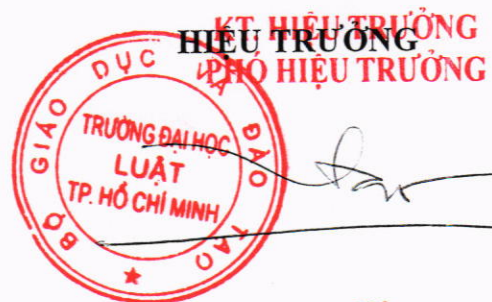 KT. HIỆU TRƯỞNG
HIỆU TRƯỞNG
PHÓ HIỆU TRƯỞNG
BỘ GIÁO DỤC VÀ ĐÀO TẠO
TRƯỜNG ĐẠI HỌC
LUẬT
TP. HỒ CHÍ MINH